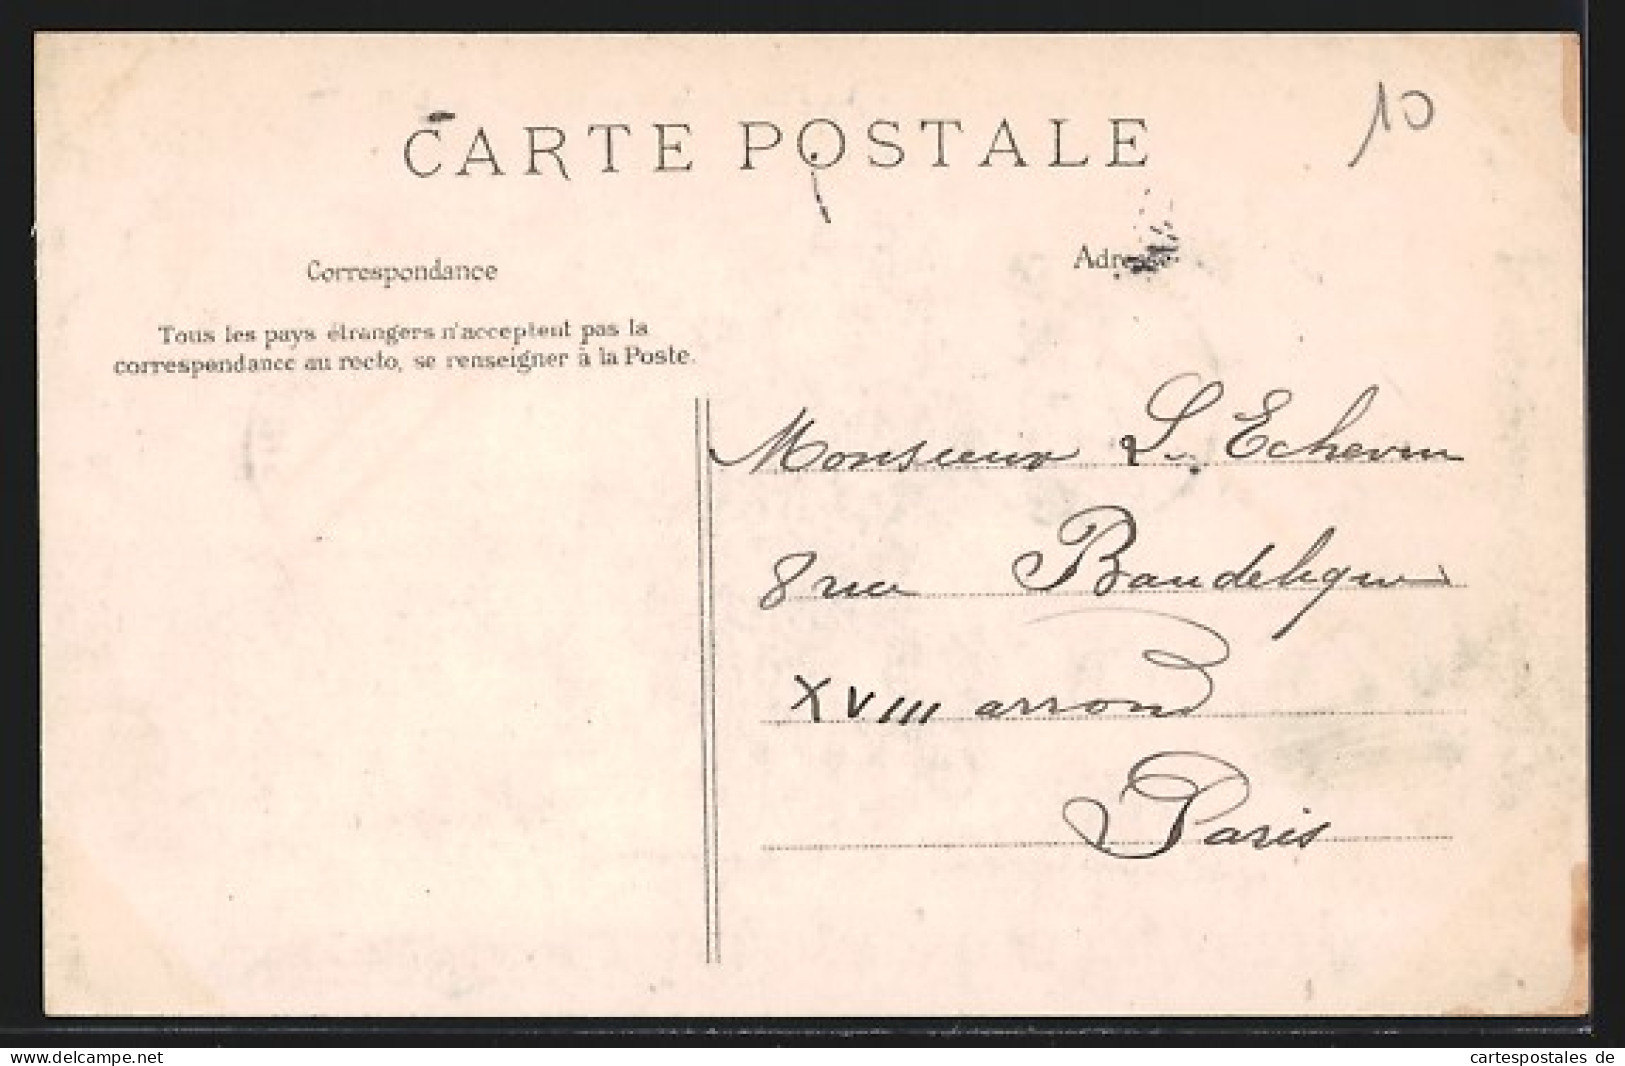 CARTE POSTALE
10
Correspondance
Adresse
Tous les pays étrangers n'acceptent pas la
correspondance au recto, se renseigner à la Poste.
Monsieur L. Echevin
8 rue Baudelique
XVIII arrond
Paris
www.delcampe.net
cartespostales de